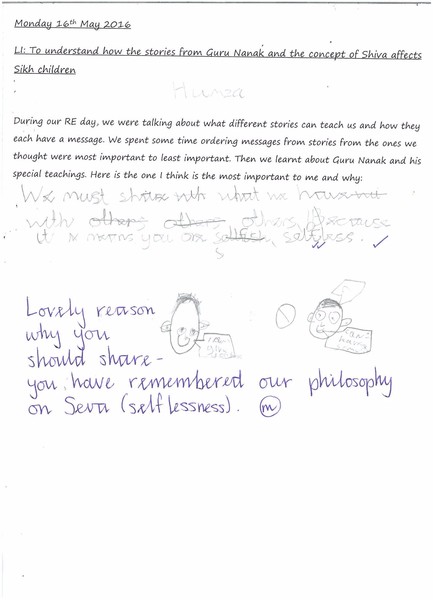 Monday 16th May 2016
LI: To understand how the stories from Guru Nanak and the concept of Shiva affects
Sikh children
Humza
During our RE day, we were talking about what different stories can teach us and how they
each have a message. We spent some time ordering messages from stories from the ones we
thought were most important to least important. Then we learnt about Guru Nanak and his
special teachings. Here is the one I think is the most important to me and why:
We must share with what we
with others others others because
it means you are selfish, selfless.
S
Lovely reason
why you
should share -
you have remembered our philosophy
on Seva (selflessness). m